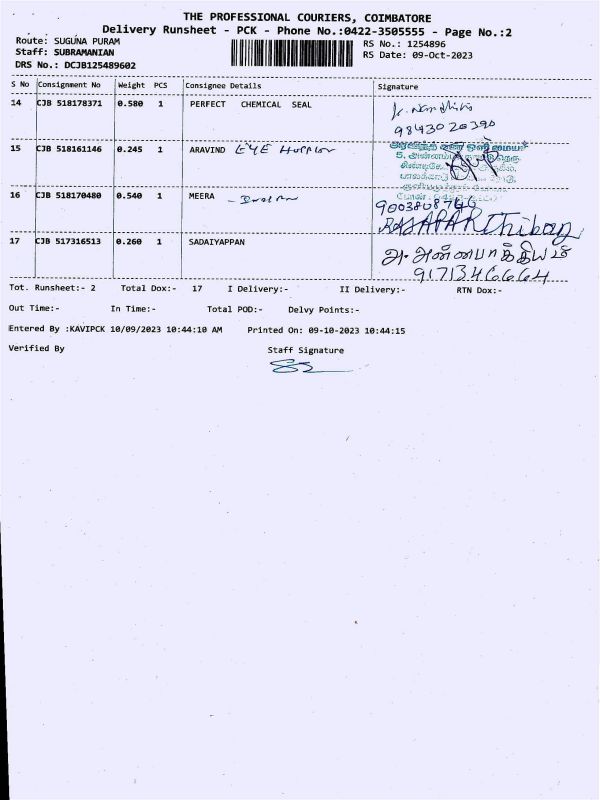 THE PROFESSIONAL COURIERS, COIMBATORE
Delivery Runsheet - PCK - Phone No.:0422-3505555 - Page No.:2
Route: SUGUNA PURAM
RS No.: 1254896
Staff: SUBRAMANIAN
RS Date: 09-Oct-2023
DRS No.: DCJB125489602
S No Consignment No Weight PCS Consignee Details Signature
14 CJB 518178371 0.580 1 PERFECT CHEMICAL SEAL
9843020390
15 CJB 518161146 0.245 1 ARAVIND EYE
5,
16 CJB 518170480 0.540 1 MEERA
9003808740
17 CJB 517316513 0.260 1 SADAIYAPPAN
அ. அன்பாக்கியம்
9171346664
Tot. Runsheet:- 2 Total Dox:- 17 I Delivery:- II Delivery:- RTN Dox:-
Out Time:- In Time:- Total POD:- Delvy Points:-
Entered By :KAVIPCK 10/09/2023 10:44:10 AM Printed On: 09-10-2023 10:44:15
Verified By Staff Signature